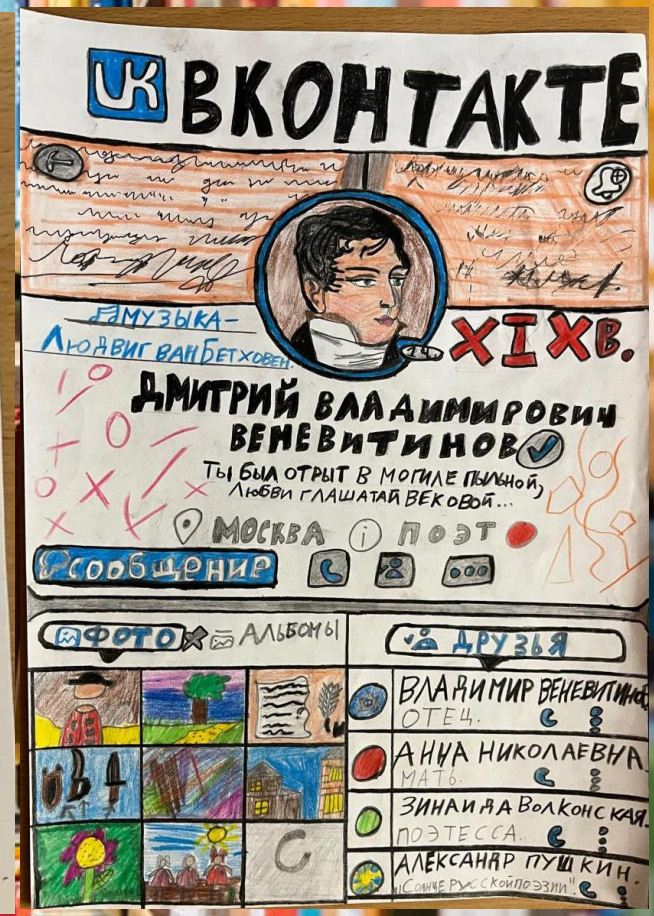 VK ВКОНТАКТЕ
МУЗЫКА-
ЛЮДВИГ ВАН БЕТХОВЕН.
XIXВ.
ДМИТРИЙ ВЛАДИМИРОВИЧ
ВЕНЕВИТИНОВ
ТЫ БЫЛ ОТРЫТ В МОГИЛЕ ПЫЛЬНОЙ,
ЛЮБВИ ГЛАШАТАЙ ВЕКОВОЙ...
МОСКВА i ПОЭТ
СООБЩЕНИЕ
ФОТО АЛЬБОМЫ
ДРУЗЬЯ
ВЛАДИМИР ВЕНЕВИТИНОВ
ОТЕЦ.
АННА НИКОЛАЕВНА.
МАТЬ.
ЗИНАИДА ВОЛКОНСКАЯ.
ПОЭТЕССА.
АЛЕКСАНДР ПУШКИН.
"СОЛНЦЕ РУССКОЙ ПОЭЗИИ".